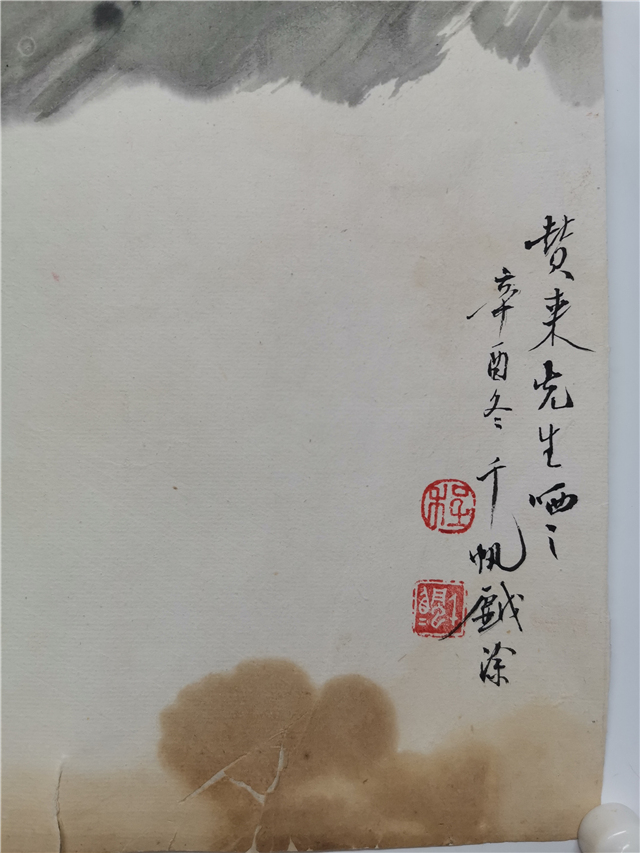 赞来先生哂之
辛酉冬千帆戲涂
程